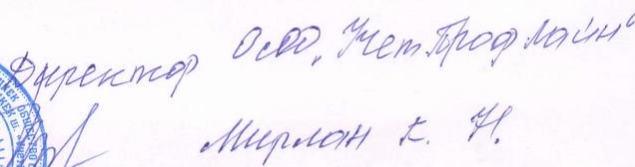 Директор ОсОО „УчетПрофЛайн"
Мирлан к. Н.